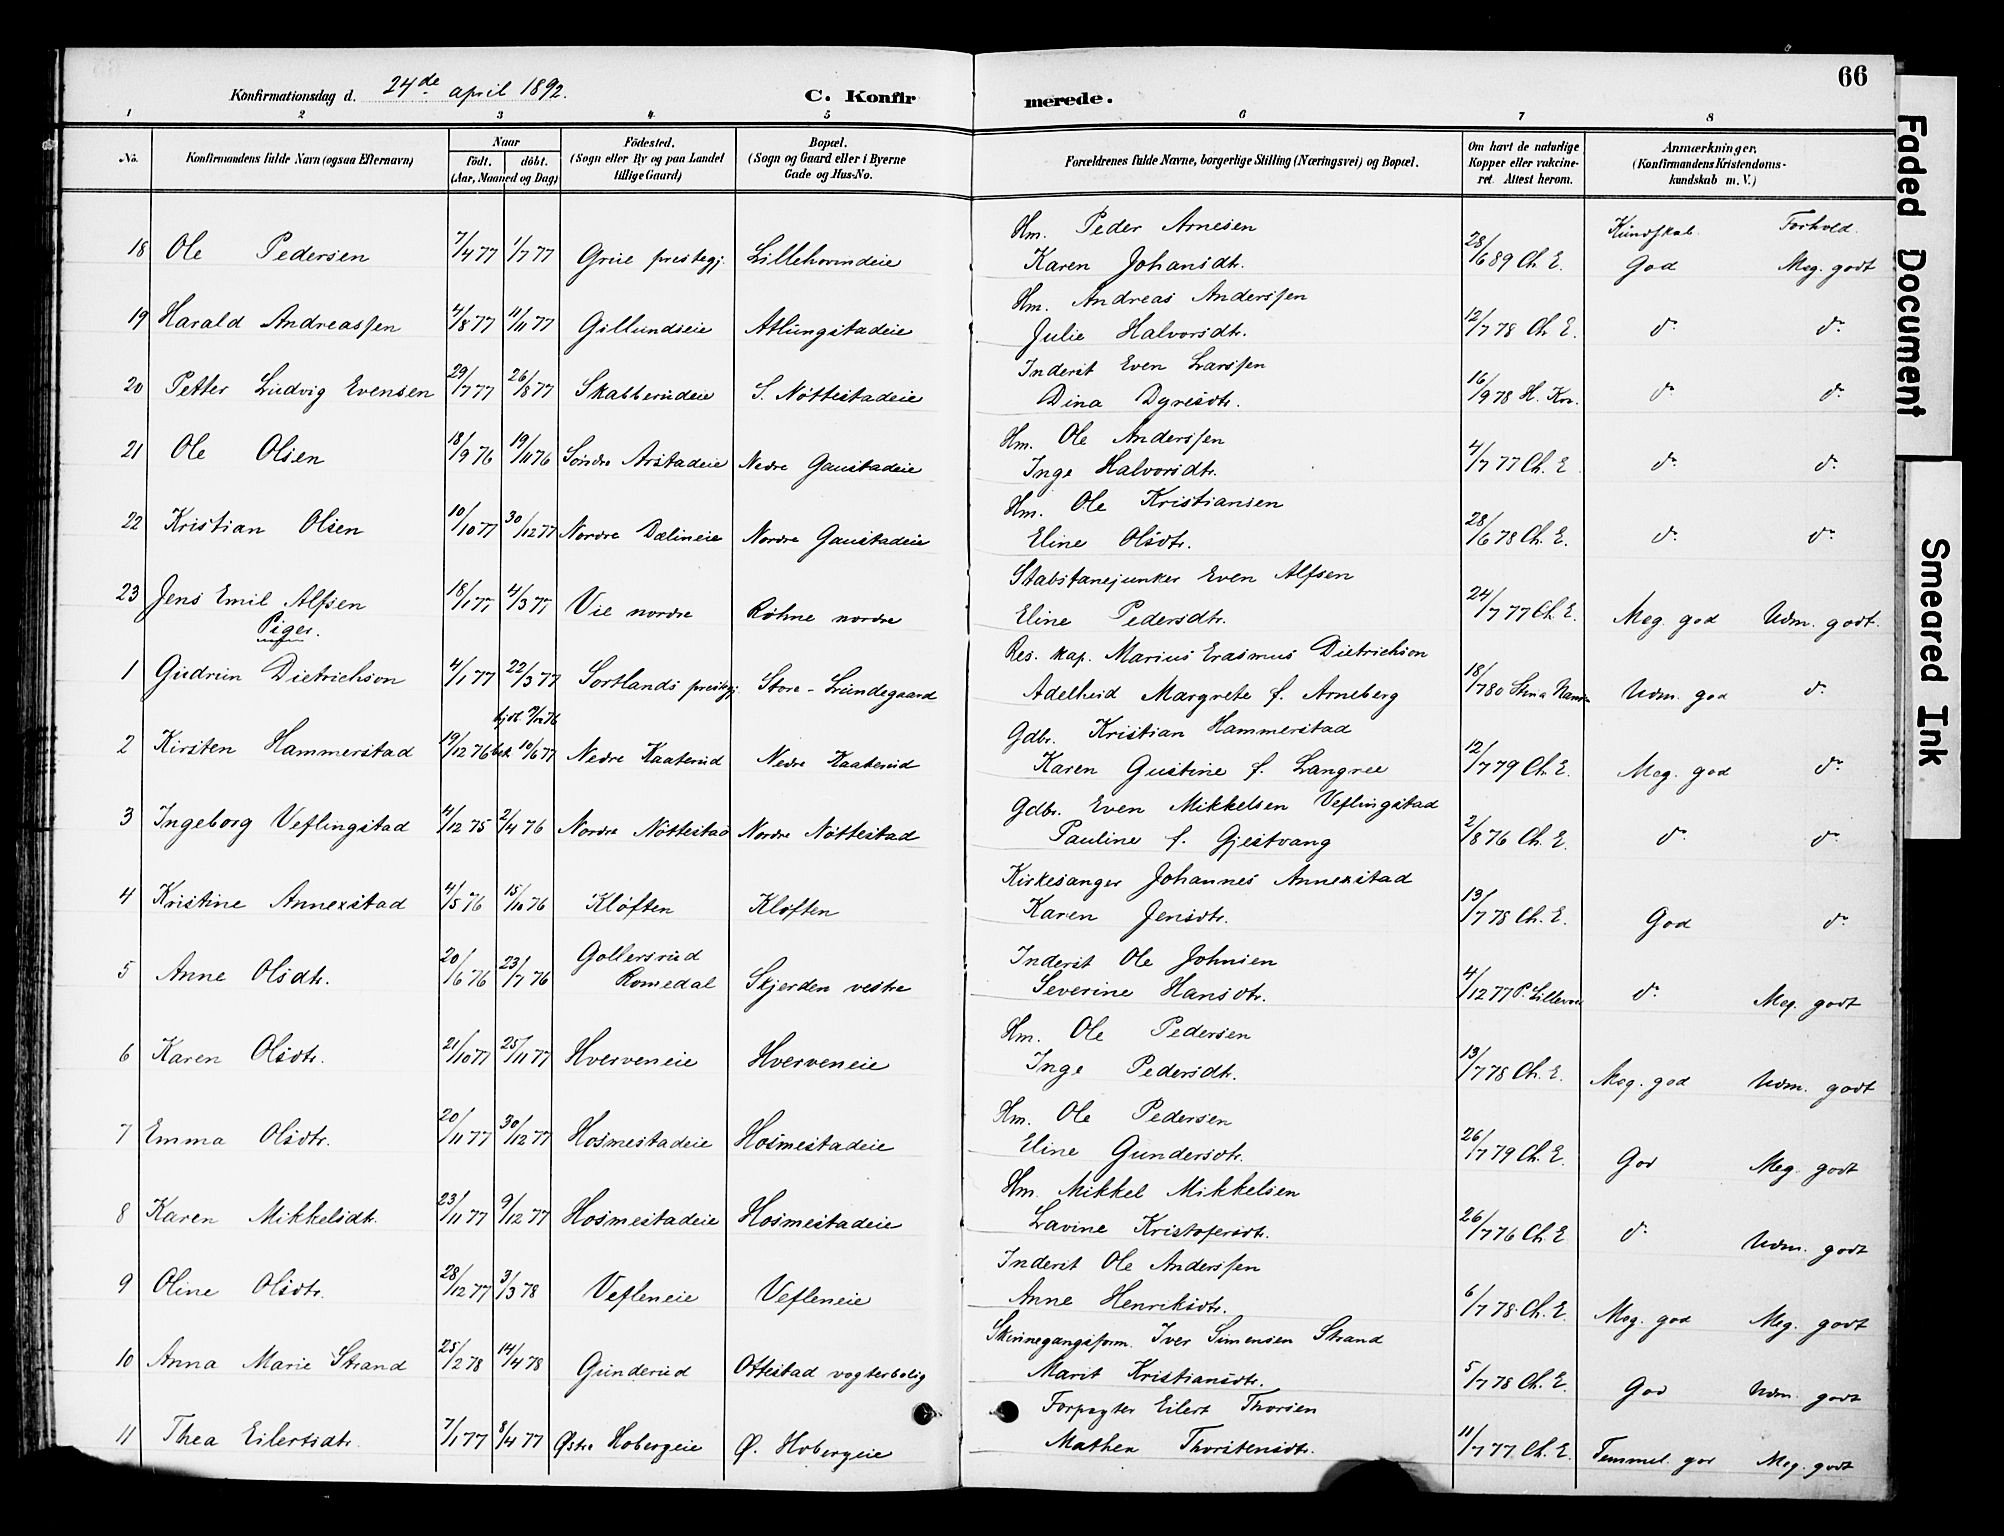 66
Konfirmationsdag d. 24de april 1892.
C. Konfirmerede.
1 2 3 4 5 6 7 8
No. Konfirmandens fulde Navn (ogsaa Efternavn) Naar født, døbt. (Aar, Maaned og Dag) Fødested. (Sogn eller By og paa Landet tillige Gaard) Bopæl. (Sogn og Gaard eller i Byerne Gade og Hus-No. Forældrenes fulde Navne, borgerlige Stilling (Næringsvei) og Bopæl. Om havt de naturlige Kopper eller vakcineret. Attest herom. Anmærkninger, (Konfirmandens Kristendomskundskab m. V.)
Kundskab. Forhold.
18 Ole Pedersen 7/4 77 1/7 77 Grue prestegj. Lillehovindeie Hm. Peder Arnesen
Karen Johansdtr. 28/6 89 Ch. E. God Meg. godt
19 Harald Andreassen 4/8 77 11/11 77 Gillundseie Atlungstadeie Hm. Andreas Anderssen
Julie Halvorsdtr. 12/7 78 Ch. E. do do
20 Petter Ludvig Evensen 29/7 77 26/8 77 Skabberudeie S. Nøttestadeie Inderst Even Larssen
Dina Dyresdtr. 16/9 78 H. Kr. do do
21 Ole Olsen 18/9 76 19/11 76 Søndre Arstadeie Nedre Gaustadeie Hm. Ole Anderssen
Inge Halvorsdtr. 4/7 77 Ch. E. do do
22 Kristian Olsen 10/10 77 30/12 77 Nordre Dælineie Nordre Gaustadeie Hm. Ole Kristiansen
Eline Olsdtr. 28/6 78 Ch. E. do do
23 Jens Emil Alfsen 18/1 77 4/3 77 Vie nordre Røhne nordre Stabsfanejunker Even Alfsen
Eline Pedersdtr. 24/7 77 Ch. E. Meg. god Udm. godt.
Piger.
1 Gudrun Dietrichson 4/1 77 22/3 77 Sortlands prestegj. Store-Lundegaard Res. kap. Marius Erasmus Dietrichson
Adelheid Margrete f. Arneberg 18/7 80 Udm. god do
2 Kirsten Hammerstad 19/12 76 bek. 10/6 77 Nedre Kaaterud Nedre Kaaterud Gdbr. Kristian Hammerstad
Karen Gustine f. Langree 12/7 79 Ch. E. Meg. god do
3 Ingeborg Veflingstad 4/12 75 2/4 76 Nordre Nøttestad Nordre Nøttestad Gdbr. Even Mikkelsen Veflingstad
Pauline f. Gjestvang 2/8 76 Ch. E. do do
4 Kristine Annexstad 4/5 76 15/10 76 Kløften Kløften Kirkesanger Johannes Annexstad
Karen Jensdtr. 13/7 78 Ch. E. God do
5 Anne Olsdtr. 20/6 76 23/7 76 Gollersrud Romedal Skjerden vestre Inderst Ole Johnsen
Severine Hansdtr. 4/12 77 do Meg. godt
6 Karen Olsdtr. 21/10 77 25/11 77 Hverveneie Hverveneie Hm. Ole Pedersen
Inge Pedersdtr. 13/7 78 Ch. E. Meg. god Udm. godt
7 Emma Olsdtr. 20/11 77 30/12 77 Hosmestadeie Hosmestadeie Hm. Ole Pedersen
Eline Gundersdtr. 26/7 79 Ch. E. God Meg. godt
8 Karen Mikkelsdtr. 23/11 77 9/12 77 Hosmestadeie Hosmestadeie Hm. Mikkel Mikkelsen
Lavine Kristofersdtr. 26/7 76 Ch. E do Udm. godt
9 Oline Olsdtr. 28/12 77 3/3 78 Vefleneie Vefleneie Inderst Ole Anderssen
Anne Henriksdtr. 6/7 78 Ch. E. Meg. god Meg. godt
10 Anna Marie Strand 25/2 78 14/4 78 Gunderud Ottestad vogterbolig Skinnegangsform. Iver Simensen Strand
Marit Kristiansdtr. 5/7 78 Ch. E. God Udm. godt
11 Thea Eilertsdtr. 7/1 77 8/4 77 Østre Hobergeie Ø. Hobergeie Forpagter Eilert Thorsen
Mathea Thorstensdtr. 11/7 77 Ch. E. Temmel. god Meg. godt
Faded Document
Smeared Ink